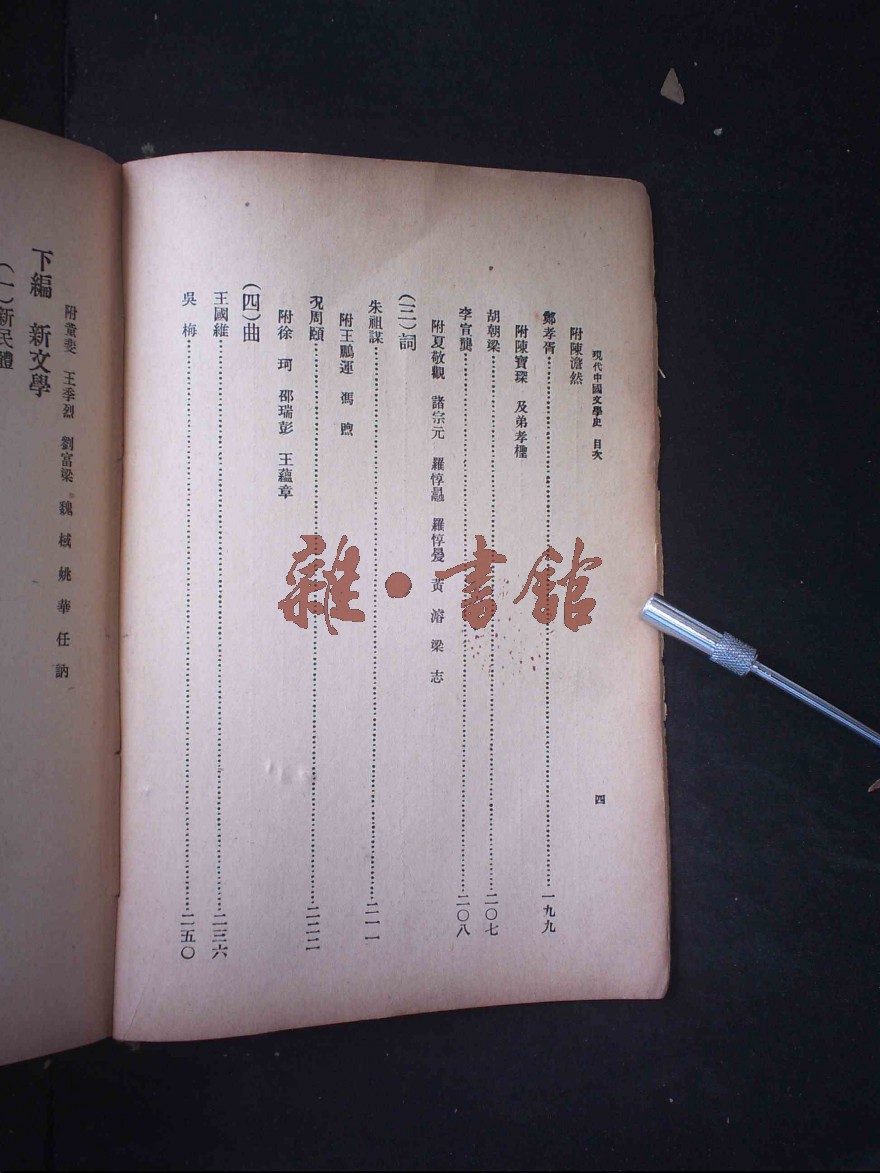 現代中國文學史 目次
四
附陳澹然
鄭孝胥⋯⋯一九九
附陳寶琛 及弟孝檉
胡朝梁⋯⋯二〇七
李宣龔⋯⋯二〇八
附夏敬觀 諸宗元 羅惇曧 羅惇㬊 黃濬 梁志
(三)詞
朱祖謀⋯⋯二一一
附王鵬運 馮煦
況周頤⋯⋯二二二
附徐珂 邵瑞彭 王蘊章
(四)曲
王國維⋯⋯二三六
吳梅⋯⋯二五〇
附童斐 王季烈 劉富梁 魏 域 姚 華 任 訥
下編 新文學
(一)新民體
雜·書館